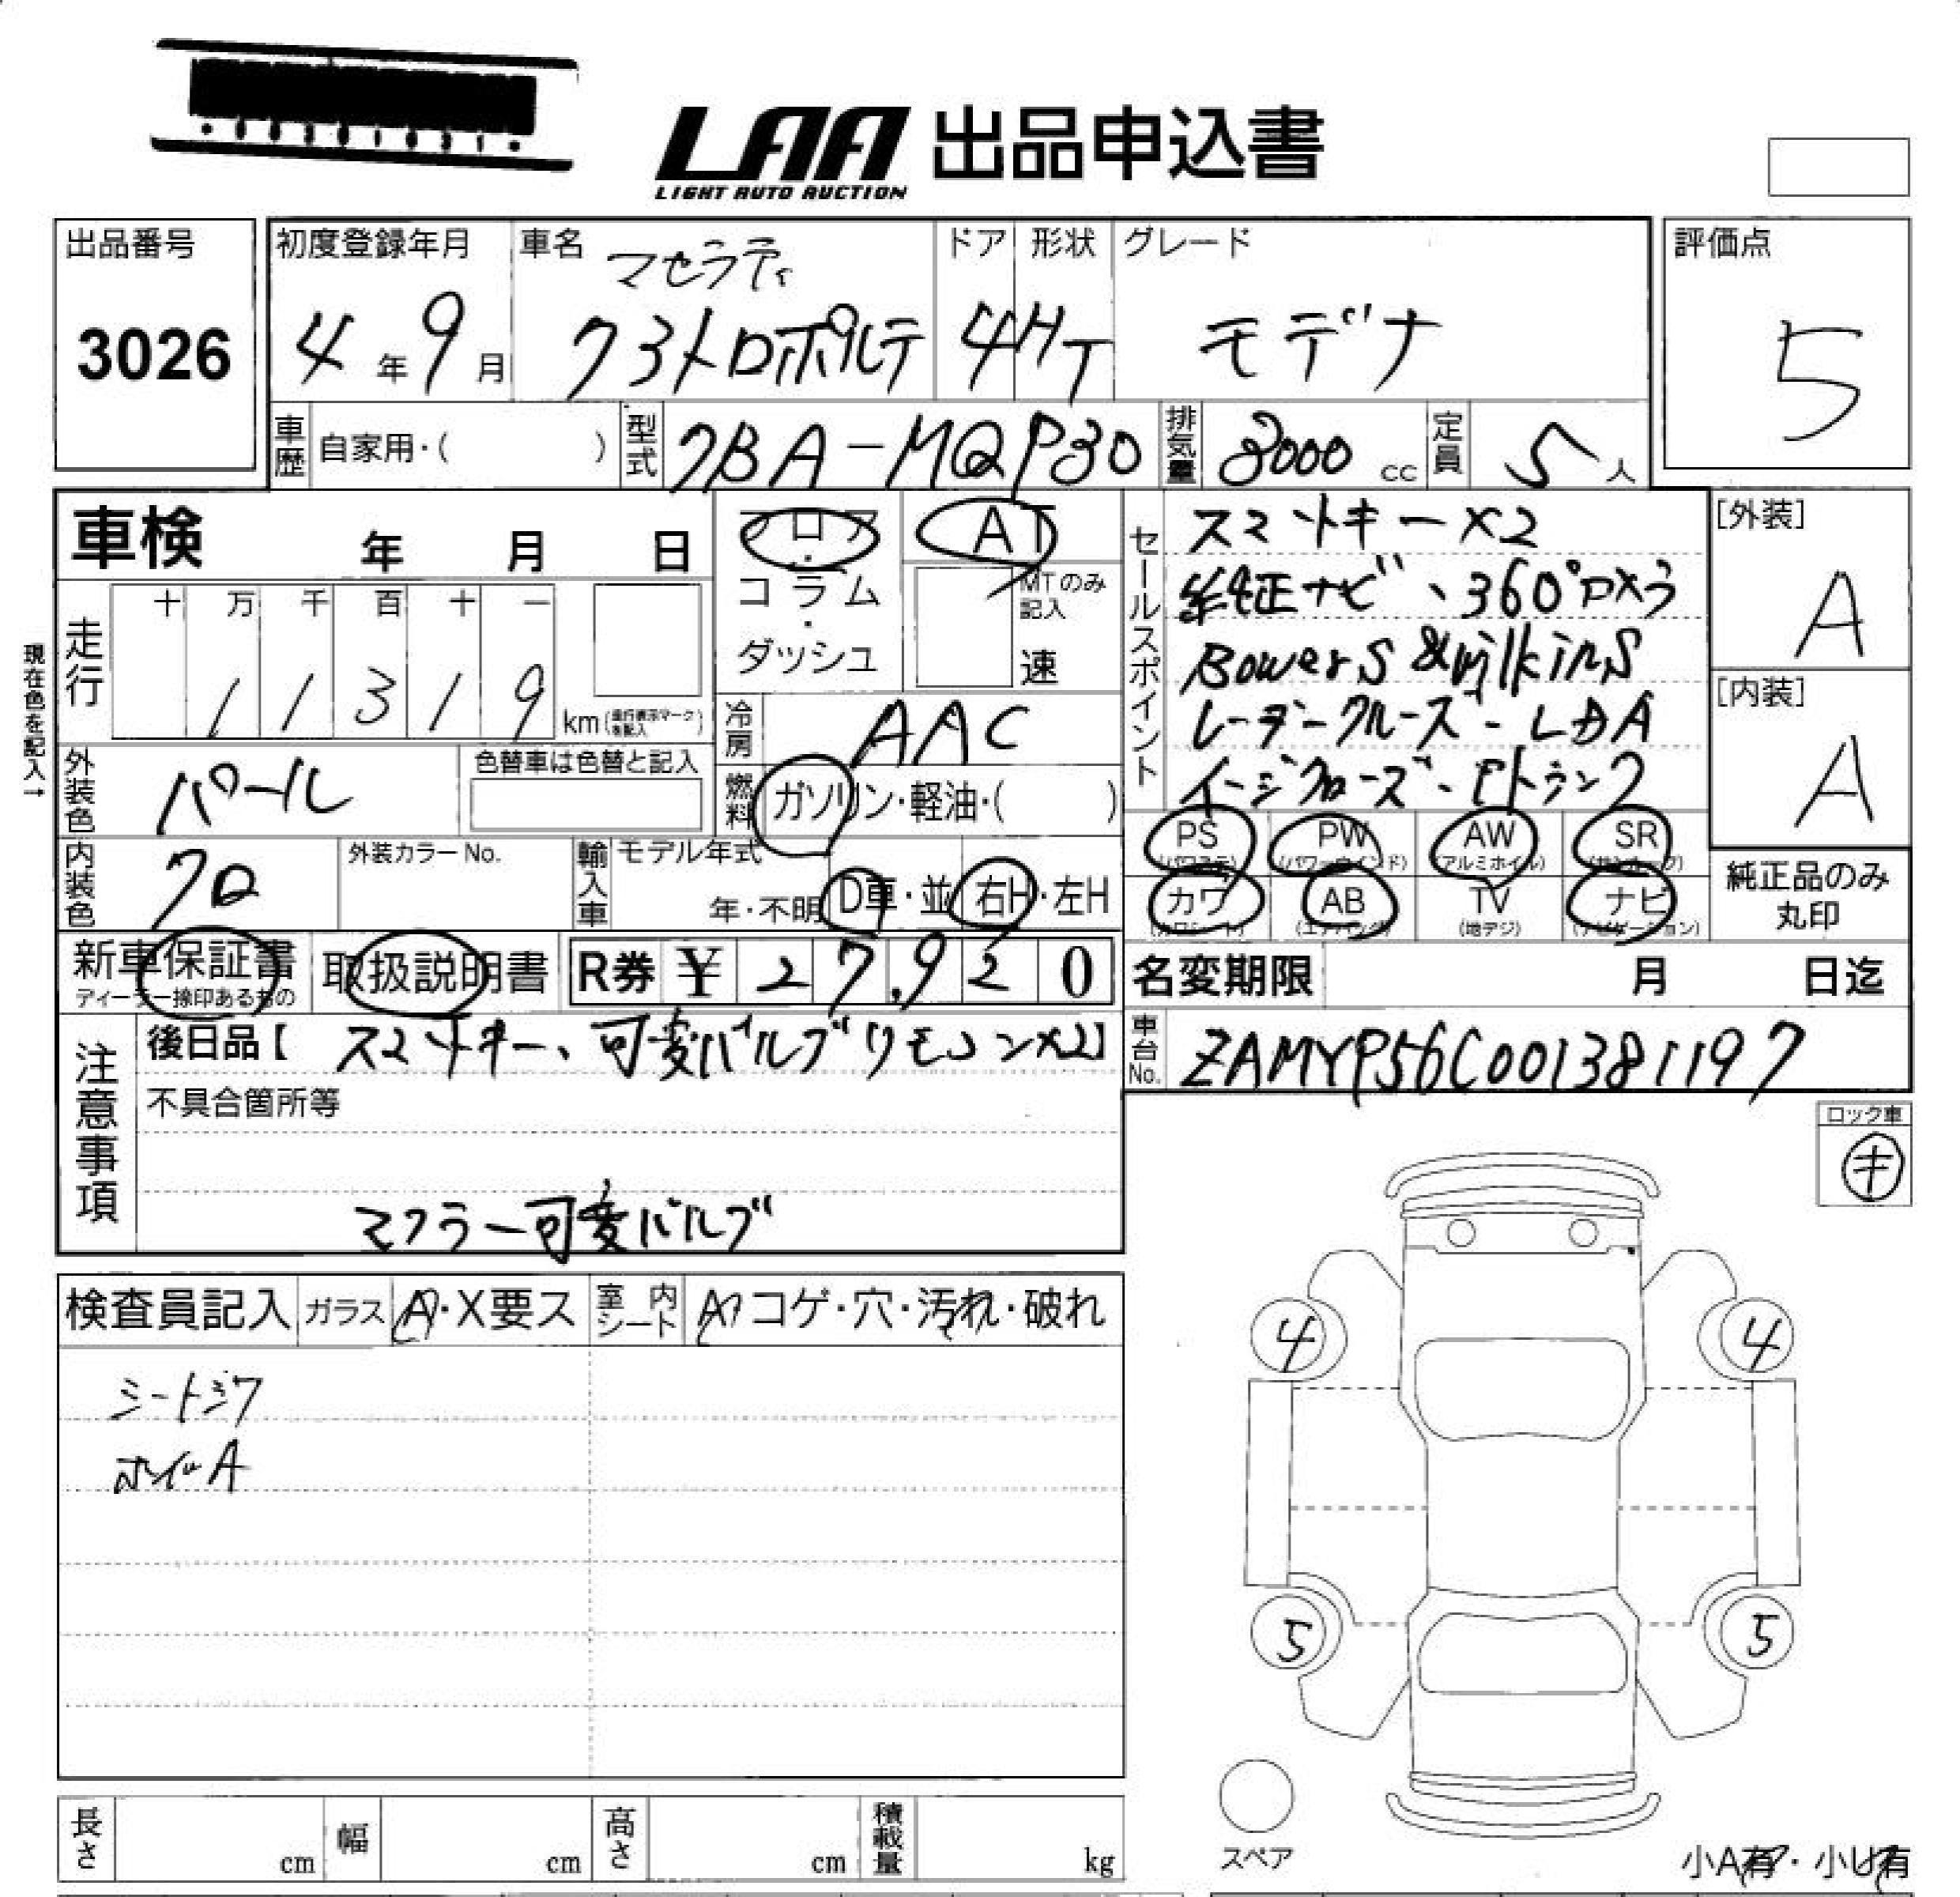 LAA 出品申込書
LIGHT AUTO AUCTION
出品番号
3026
初度登録年月
4年9月
車名
マセラティ
クヮトロポルテ
ドア
4
形状
HT
グレード
モデナ
評価点
5
車歴
自家用・( )
型式
7BA-MQP30
排気量
3000 cc
定員
5 人
車検 年 月 日
フロア
・
コラム
・
ダッシュ
AT
MTのみ
記入
速
現在色を記入→
走行
十 万 千 百 十 一
1 1 3 1 9 km (走行表示マークを記入)
冷房
AAC
外装色
パール
色替車は色替と記入
燃料
ガソリン・軽油・( )
内装色
クロ
外装カラーNo.
輸入車
モデル年式
年・不明
D車・並
右H・左H
セールスポイント
スマートキー×2
純正ナビ、360°カメラ
Bowers & wilkins
レーダークルーズ・LDA
イージクローズ・Eトランク
[外装]
A
[内装]
A
PS
(パワステ)
PW
(パワーウインド)
AW
(アルミホイル)
SR
(サンルーフ)
カワ
(カワシート)
AB
(エアバッグ)
TV
(地デジ)
ナビ
(ナビゲーション)
純正品のみ
丸印
新車保証書
ディーラー捺印あるもの
取扱説明書
R券 ¥ 27,920
名変期限 月 日迄
注意事項
後日品【 スマートキー、可変バルブリモコン×2】
不具合箇所等
マフラー可変バルブ
車台No.
ZAMYP56C001381197
ロック車
キ
検査員記入
ガラス
A・X要ス
室内シート
A・コゲ・穴・汚れ・破れ
シートシワ
ホイルA
4
4
5
5
スペア
小A有・小U有
長さ
cm
幅
cm
高さ
cm
積載量
kg